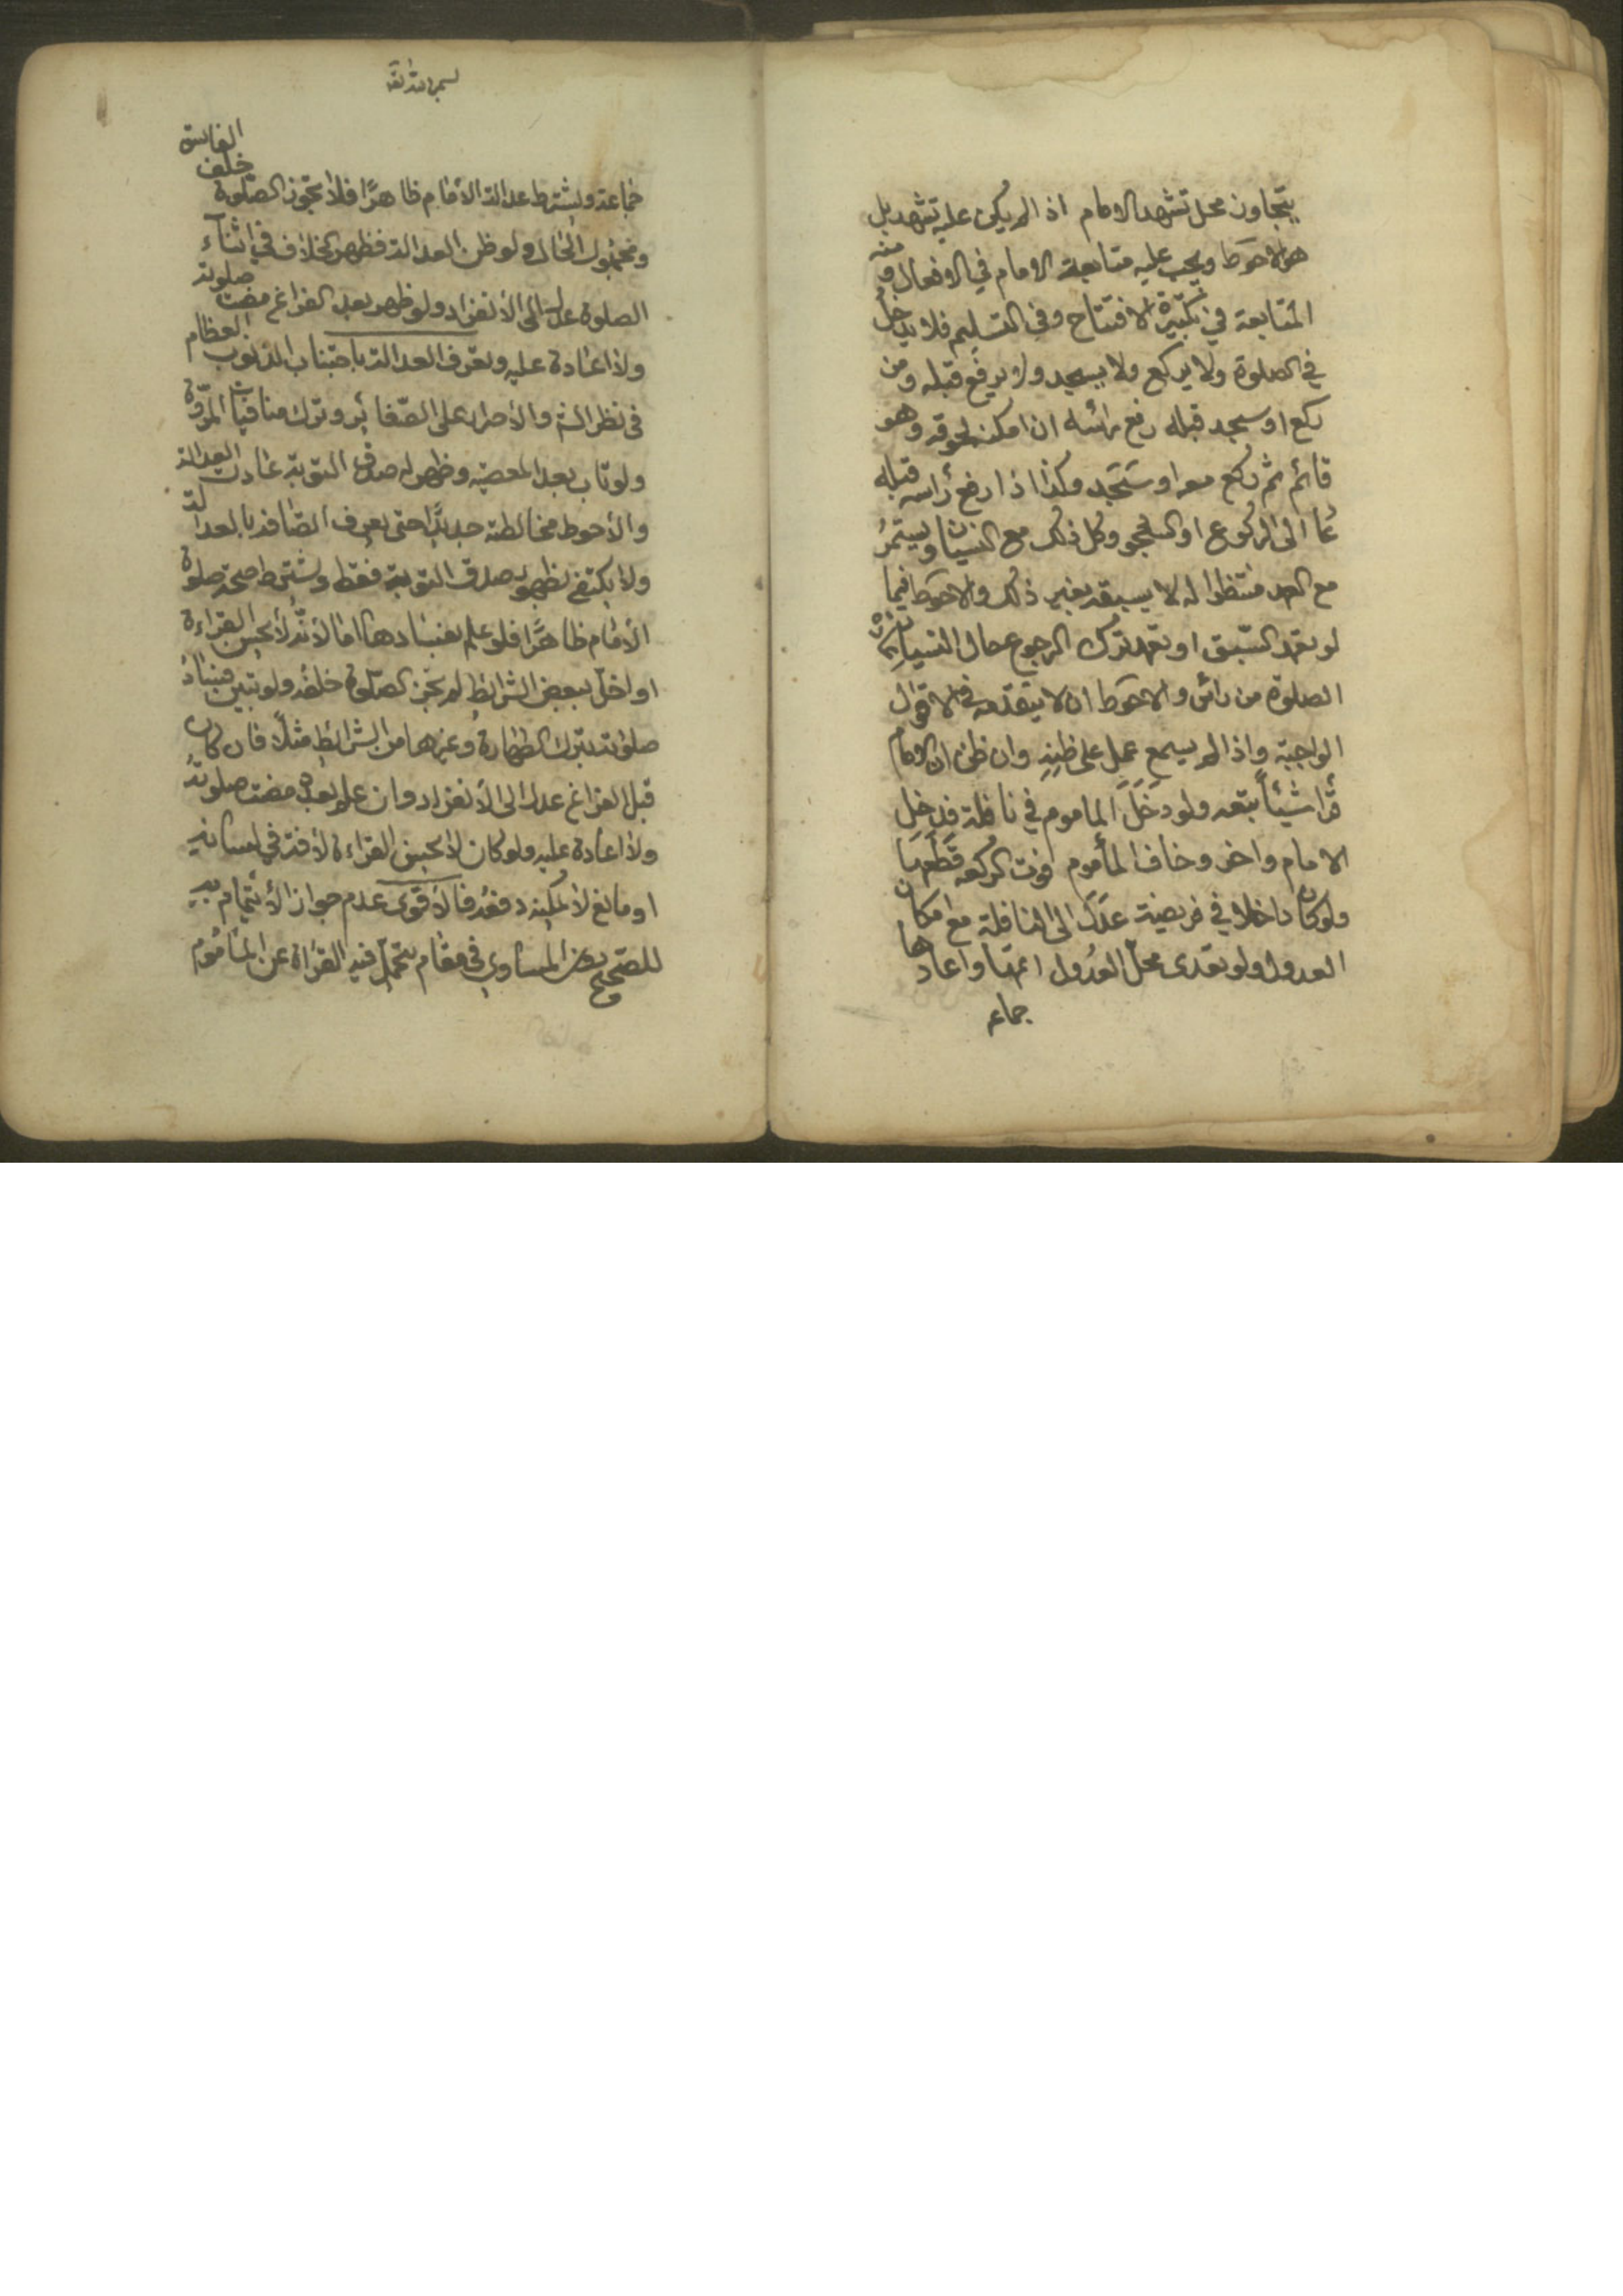 يتجاوز محل تشهد الامام اذا لم يكن عليه تشهد بل
هو الاحوط ويجب عليه متابعة الامام في الافعال ومنه
المتابعة في تكبيرة الافتتاح وفي التسليم فلا يدخل
في الصلوة ولا يركع ولا يسجد ولا يرفع قبله ومن
ركع او سجد قبله رفع رأسه ان امكنه لحوقه وهو
قائم ثم ركع معه او سَجَد وكذا اذا رفع رأسه قبله
عاد الى الركوع او السجود وكل ذلك مع النسيان ويستمرُ
مع العمد منتظرا له لا يسبقه بغير ذلك والاحوط فيما
لو تعمد السّبق او تعمد ترك الرجوع حال النسيان
الصلوة من راس والاحوط ان لا يتقدمه في الاقوال
الواجبة واذا لم يسمع عمل على ظنِهِ وان ظن ان الامام
قرأ شيئاً تبعه ولو دَخَلَ الماموم في نافلة فدخل
الامام واحر وخاف المأموم فوت الركعة قَطَعَها
ولو كان داخلا في فريضة عَدَلَ الى النافلة مع امكان
العدول ولو تعدى محلّ العدُول اتمها واعادها
جماعه
بسم الله تعالى
جماعة ويشترط عدالة الامام ظاهرًا فلا تجوز الصّلوة خلف الفاسق
ومجهول الحال ولو ظن العدالة فظهر الخلاف في اثناء
الصلوة عدل الى الانفراد ولو ظهر بعد الفراغ مضت صلوته
ولا اعادة عليه وتعرف العدالة باجتناب الذنوب العظام
في نظر الشرع والاصرار على الصّغائر وترك منافيات المروّة
ولو تاب بعد المعصية وظهر له صدق التوبة عادت العدالة
والاحوط مخالطته جديدًا حتى يعرف اتصافه بالعدالة
ولا يكتفى بظهور صدق التوبة فقط ويشترط صحة صلوة
الامام ظاهرًا فلو علم بفسادها اما لانّه لا يحسن القراءة
او اخلّ ببعض الشرائط لم تجز الصّلوة خلفه ولو تبين فسادُ
صلوته بترك الطهارة وغيرها من الشرائط مثلًا فان كان
قبل الفراغ عدل الى الانفراد وان علم بعده مضت صلوتُهُ
ولا اعادة عليه ولو كان لا يحسن القراءة لآفة في لسانه
او مانع لا يمكنه دفعُه فالاقوى عدم جواز الائتمام به
للصّحيح وعن المساوى في مقام يتحمّل فيه القراءة عن المأمُوم